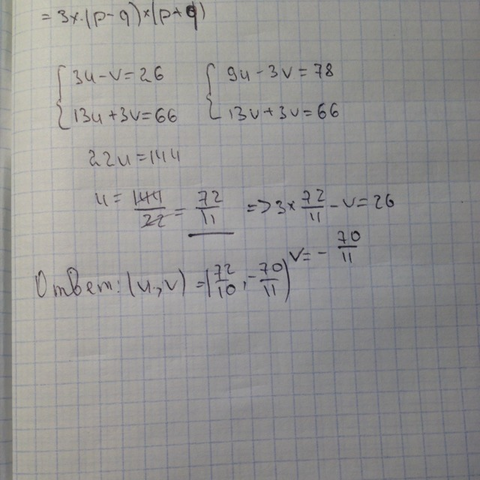 = 3x·(p-q)×(p+q)
{3u-v=26 {9u-3v=78
{13u+3v=66 {13v+3v=66
22u=144
u= 144/22 = 72/11 => 3× 72/11 -v=26
v= - 70/11
Ответ: (u,v) = (72/10, -70/11)